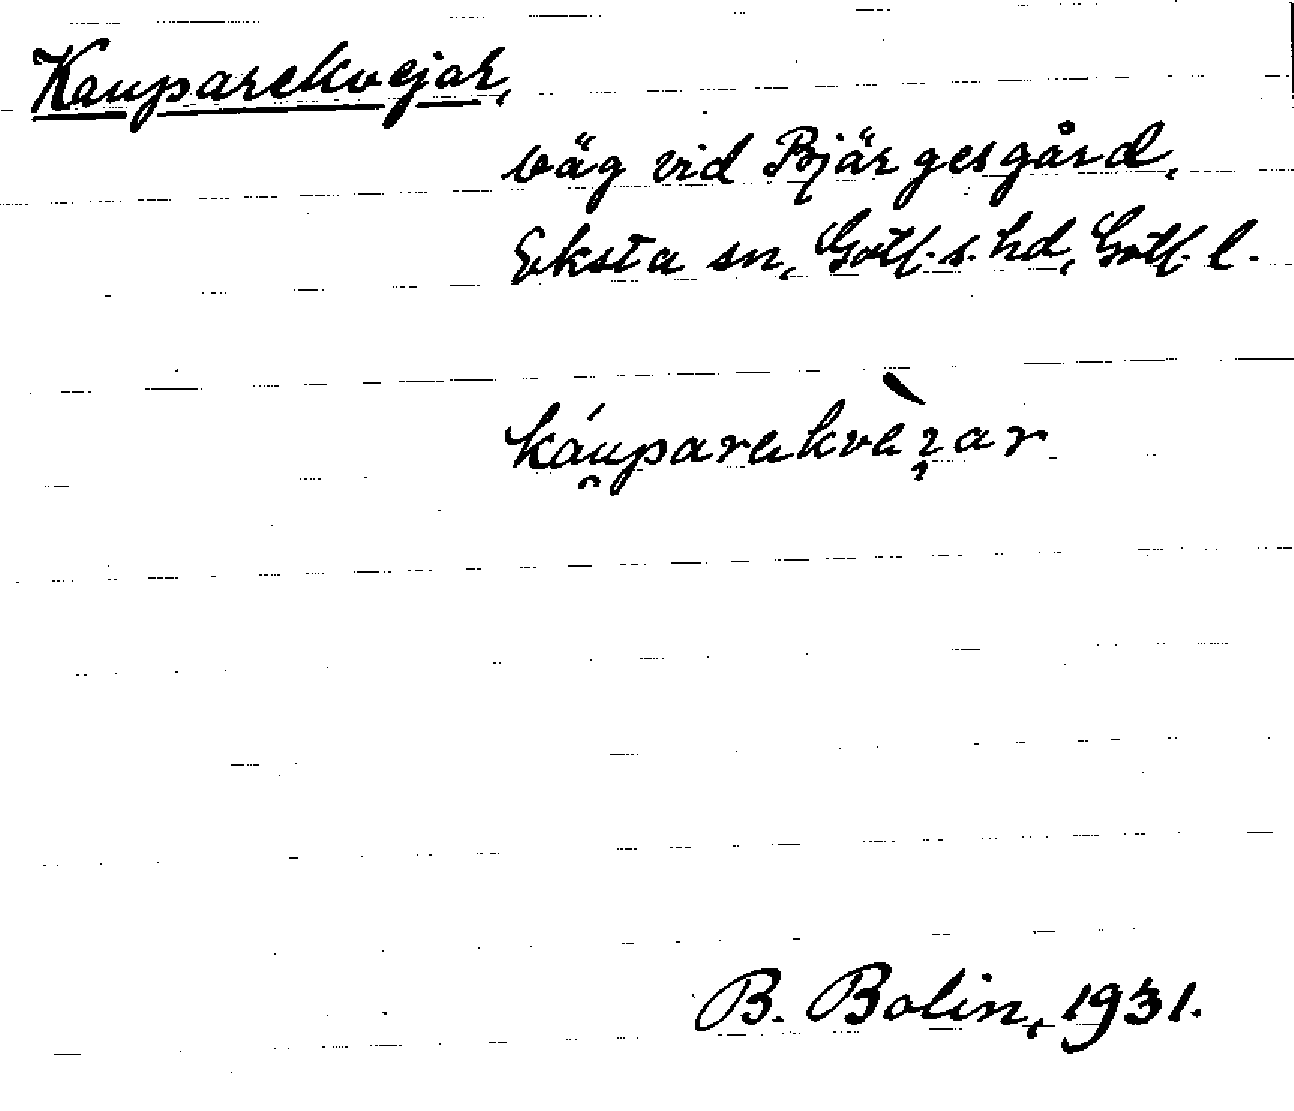 Kauparekvejar,
väg vid Bjärgesgård,
Eksta sn, Gotl. s. hd, Gotl. l.
káu̯parekvèı̣ar
B. Bolin, 1931.